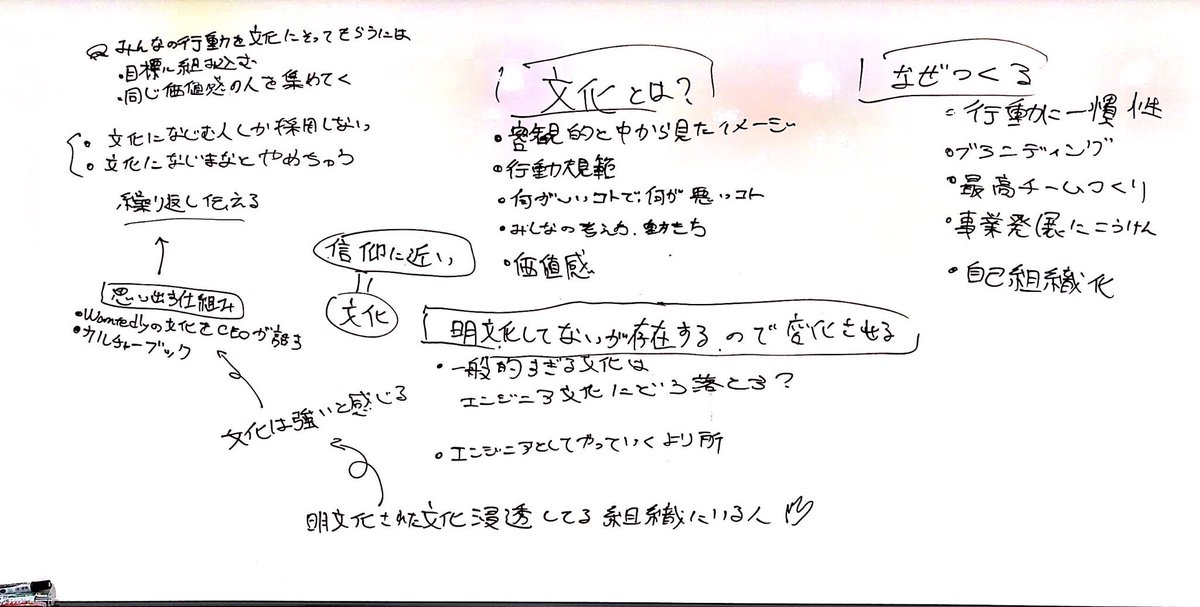 Q みんなの行動を文化にそってもらうには
・目標に組み込む
・同じ価値感の人を集めてく
・文化になじむ人しか採用しない
・文化になじまないとやめちゃう
繰り返し伝える
思い出す仕組み
・Wantedlyの文化をCEOが語る
・カルチャーブック
文化は強いと感じる
明文化された文化浸透してる組織にいる人
信仰に近い
||
文化
文化とは?
・客観的と中から見たイメージ
・行動規範
・何がいいコトで、何が悪いコト
・みんなの考え方、動き方
・価値感
明文化してないが存在する、ので変化させる
・一般的すぎる文化は
エンジニア文化にどう落とす?
・エンジニアとしてやっていくより所
なぜつくる
・行動に一慣性
・ブランディング
・最高チームつくり
・事業発展にこうけん
・自己組織化